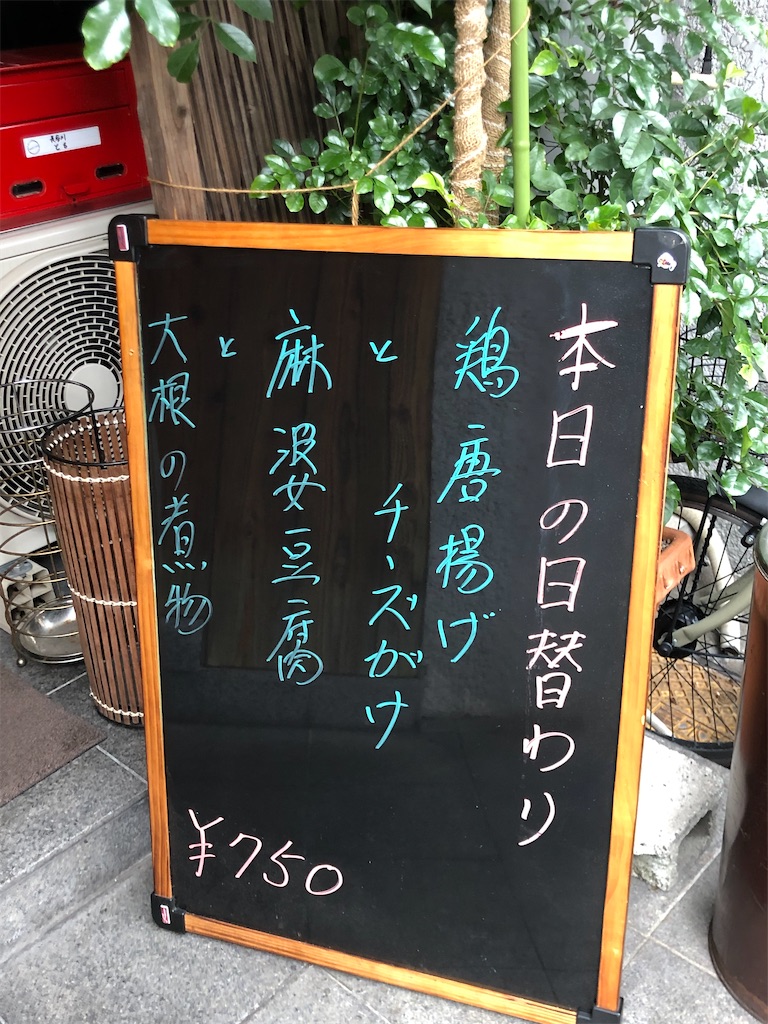 本日の日替わり
鶏唐揚げ
チーズがけ
と
麻婆豆腐
と
大根の煮物
¥750